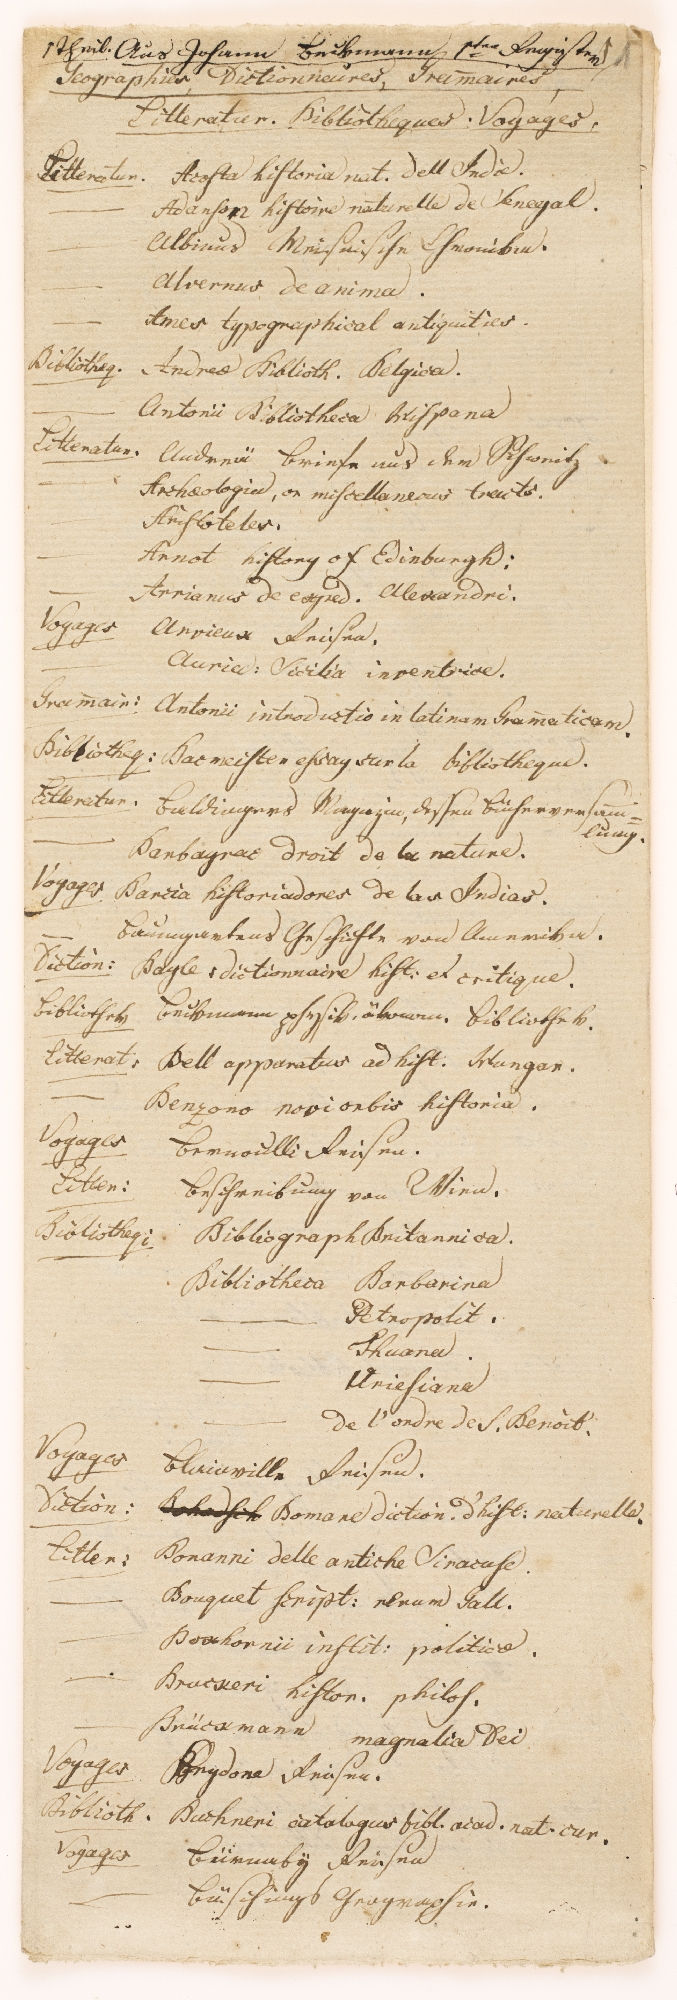 1 Theil. Aus Johann Beckmann, 1ster Register
Geographies, Dictionnaires, Gram̄aires,
Litteratur. Bibliotheques. Voyages.
Litteratur. Acosta historia nat. dell Indie.
— Adanson histoire naturelle de Senegal.
— Albinus Meisnische Chroniken.
— Alvernus de anima.
— Ames typographical antiquities.
Bibliotheq. Andreæ Biblioth. Belgica.
— Antonii Bibliotheca Hispana
Litteratur. Andreä Briefe aus der Schweitz
— Archæologia, or miscellaneous tracts.
— Aristoteles.
— Arnot history of Edinburgh;
— Arrianus de exped. Alexandri.
Voyages Arvieux Reisen.
— Auria: Sicilia inventrice.
Gram̄air: Antonii introductio in latinam Gram̄aticam.
Bibliotheq: Bacmeister essay sur la bibliotheque.
Litteratur. Baldingers Magazin, dessen Büchersam̄=
lung.
— Barbayrac droit de la nature.
Voyages Barcia historiadores de las Indias.
— Baumgartens Geschichte von Amerika.
Diction: Bayle: dictionnaire hist: et critique.
Bibliothek Beckmann physik. ökonom. Bibliothek.
Litterat: Bell apparatus ad hist. Hungar.
— Benzono novi orbis historia.
Voyages Bernoulli Reisen.
Litter: Beschreibung von Wien.
Bibliotheq: Bibliograph Britannica.
Bibliotheca Barbarina
— Petropolit.
— Thuana.
— Uriesiana
— de l'ordre de S. Benoit.
Voyages Blainville Reisen.
Diction: Bohadsch Bomare diction. d'hist: naturelle.
Litter: Bonanni delle antiche Siracuse.
— Bouquet script: rerum Gall.
— Boxhornii instit: politicæ.
— Bruckeri histor. philos.
— Brückmann magnalia Dei
Voyages Brydone Reisen.
Biblioth. Buchneri catalogus bibl. acad. nat. cur.
Voyages Bürnaby Reisen
— Büschings Geographie.